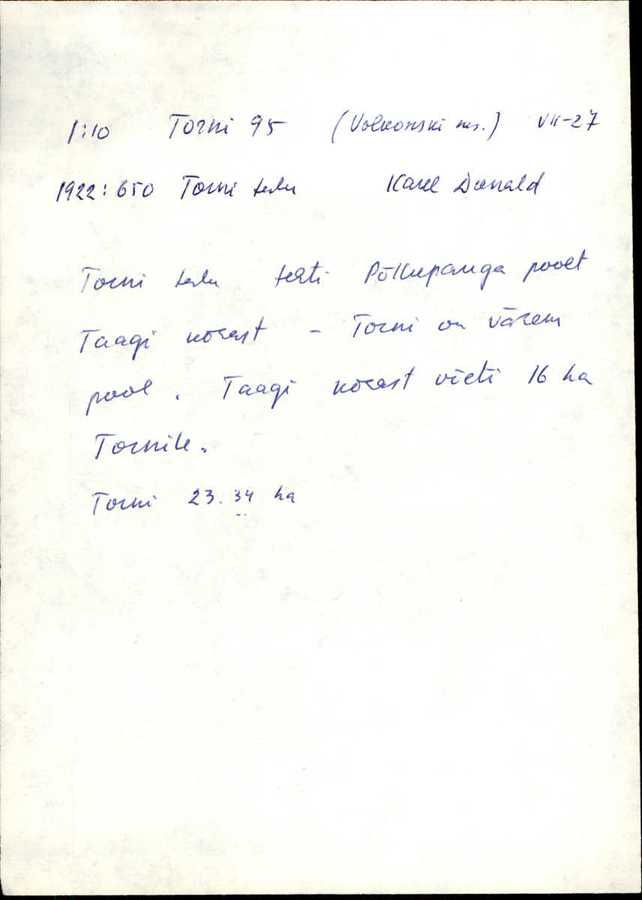 1:10 Torni 95 (Volkonski ms.) VII-27
1922: 650 Torni talu Karel Donald
Torni talu tehti Põllupanga poolt
Taagi kõrvast - Torni on värem
pool. Taagi kõrvast võeti 16 ha
Tornile.
Torni 23.34 ha